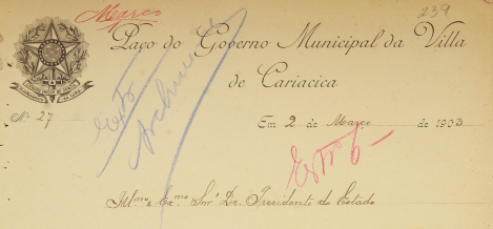 Março
239
Paço do Governo Municipal da Villa
de Cariacica
Nº 27
Em 2 de Março de 1903
Illmo e Exmo Snr Dr. Presidente do Estado